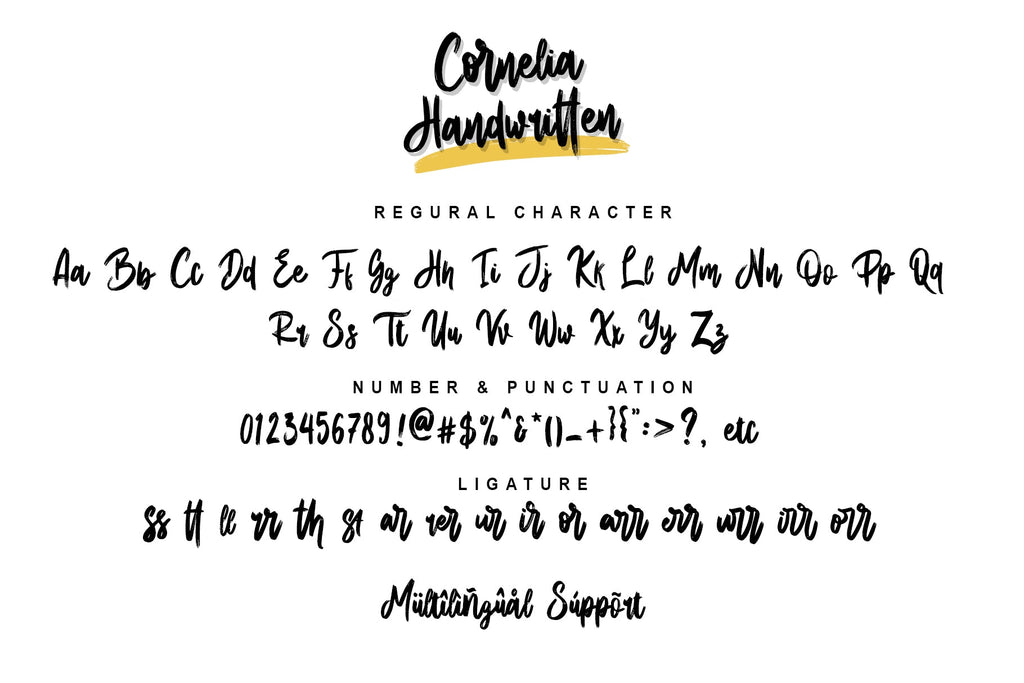 Cornelia
Handwritten
REGURAL CHARACTER
Aa Bb Cc Dd Ee Ff Gg Hh Ii Jj Kk Ll Mm Nn Oo Pp Qq
Rr Ss Tt Uu Vv Ww Xx Yy Zz
NUMBER & PUNCTUATION
0123456789!@#$%^&*()_+}{":>?, etc
LIGATURE
ss tt ll rr th st ar rer ur ir or arr err urr irr orr
Mültîlìñgûål Súppõrt